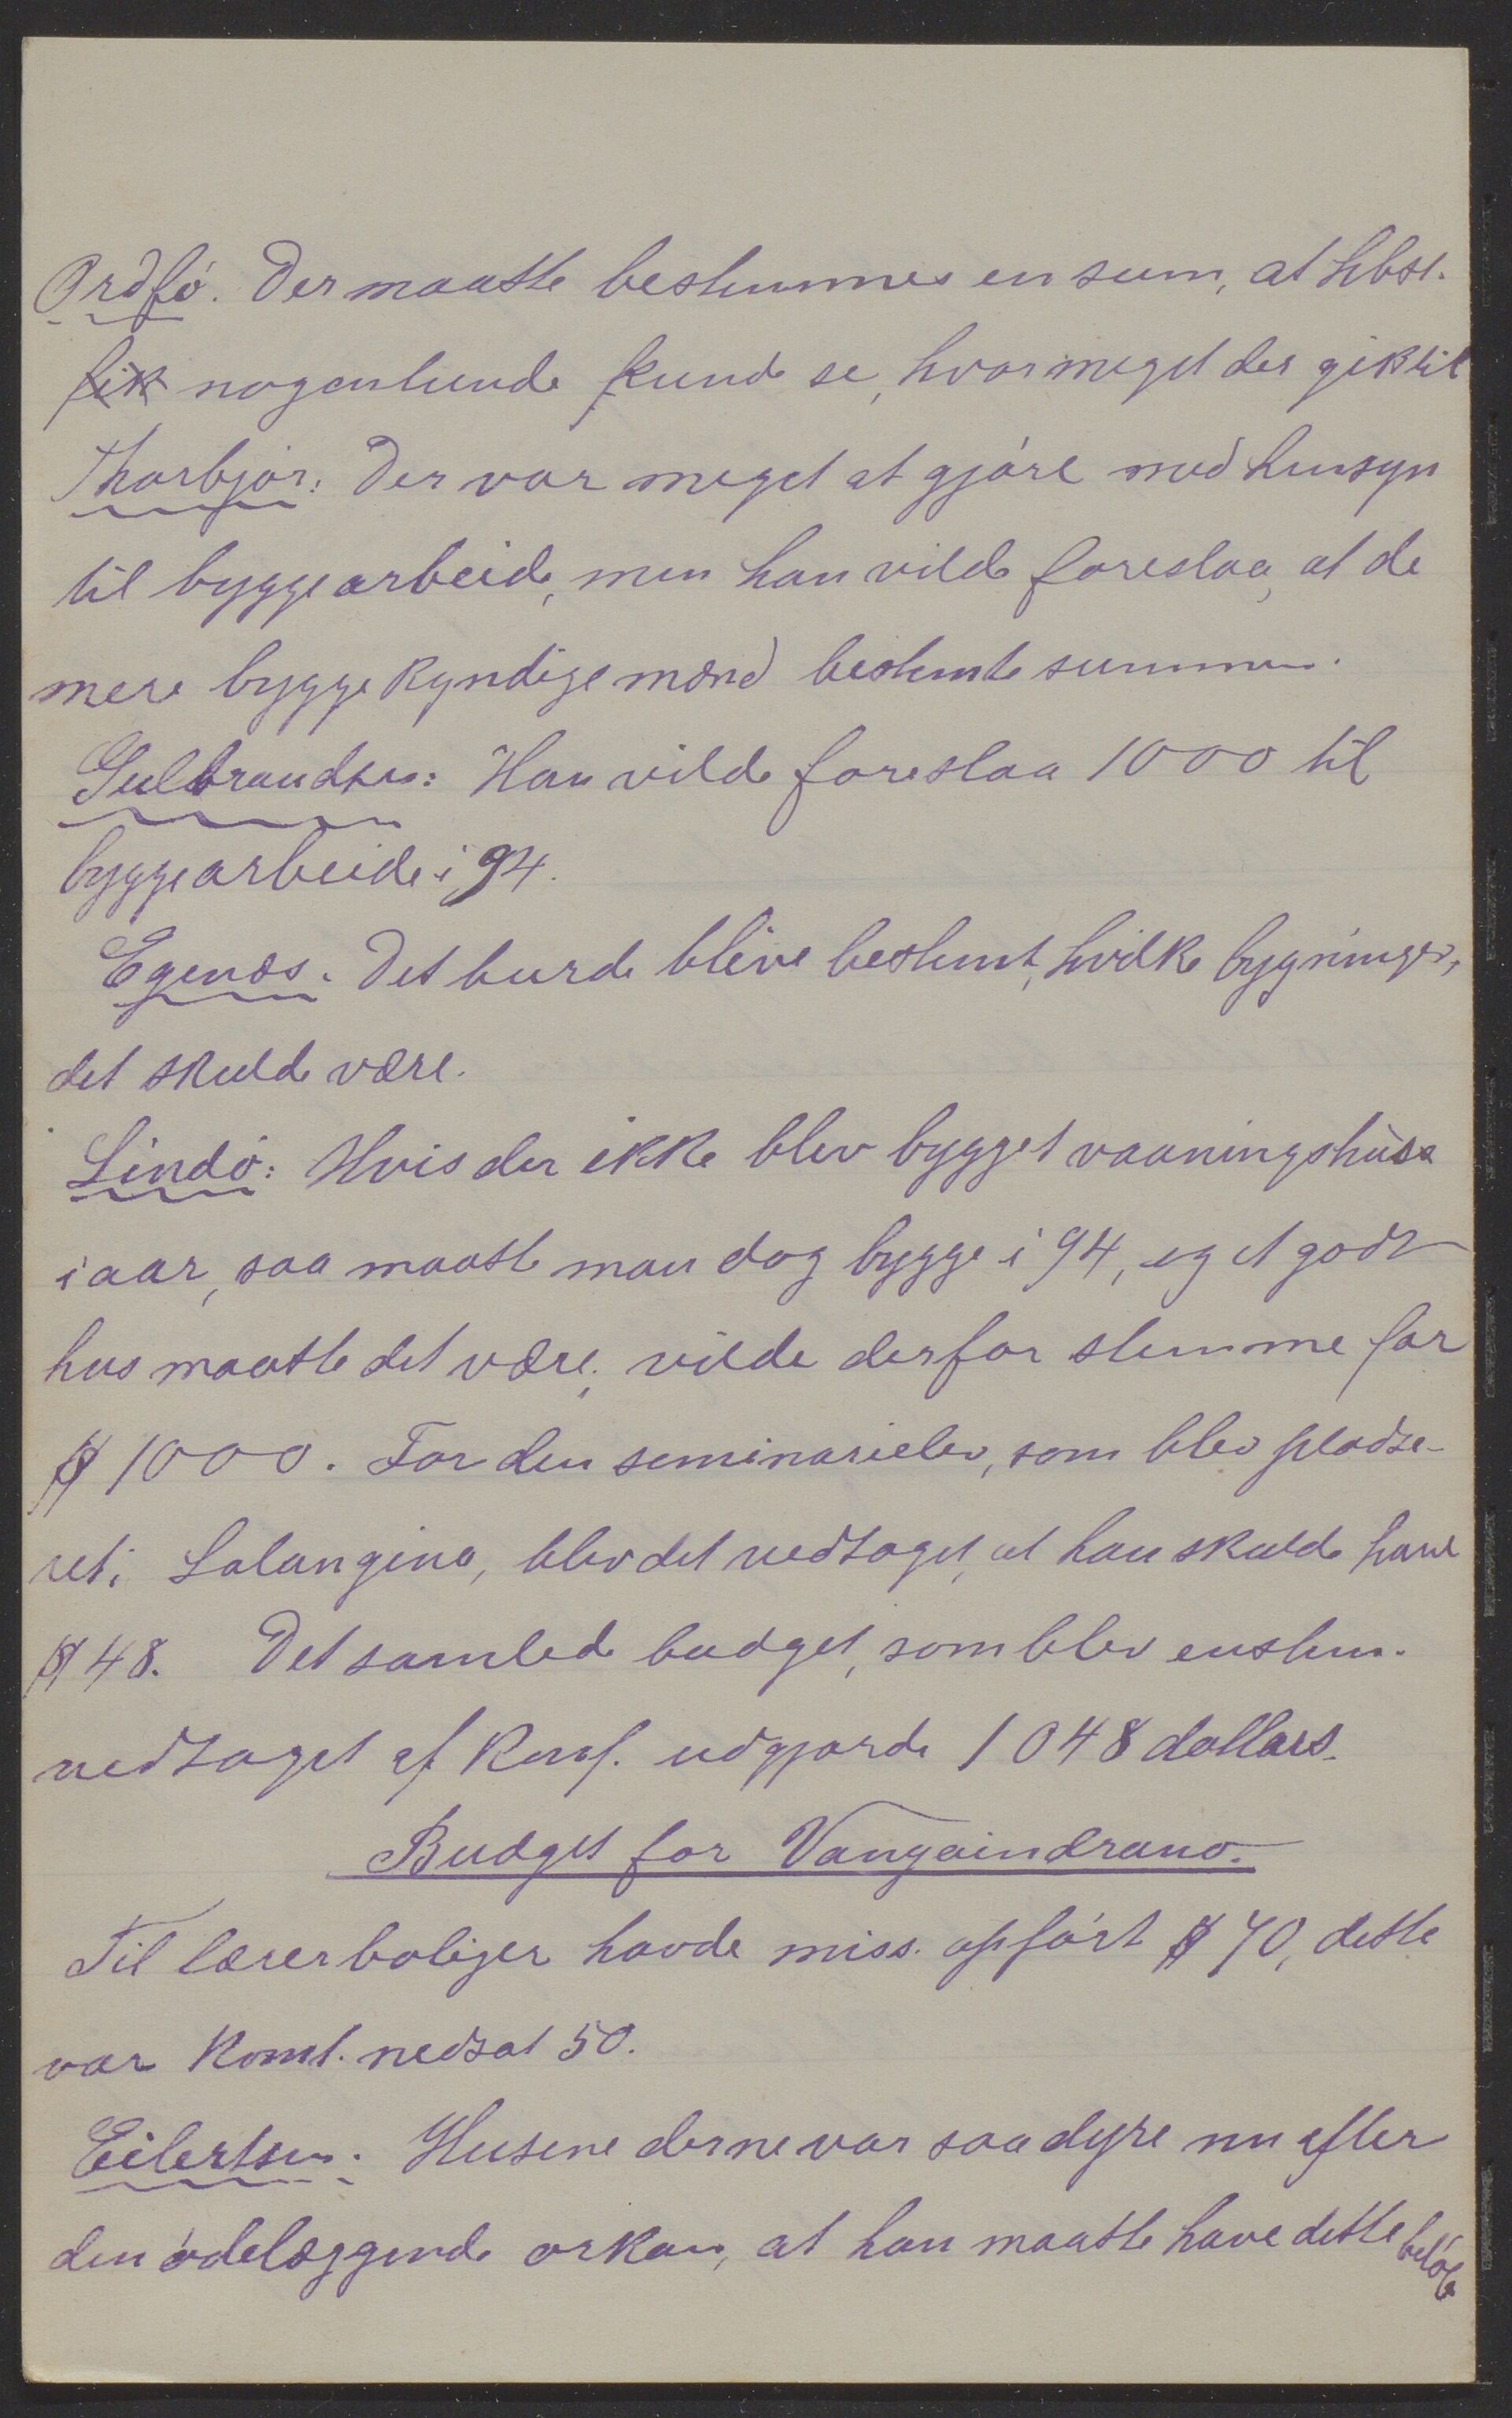 Ordfö. Der maatte bestemmes en sum, at hbst.
fik nogenlunde kunde se, hvor meget der gik til
Thorbjør: Der var meget at gjøre med hensyn
til byggearbeide, men han vilde foreslaa, at de
mere byggekyndige mænd bestemte summen.
Gulbrandsen: Han vilde foreslaa 1000 til
byggearbeide i 94.
Egenæs. Det burde blive bestemt, hvilke bygninger,
det skulde være.
Lindø: Hvis der ikke blev bygget vaaningshuse
i aar, saa maatte man dog bygge i 94, og et godt
hus maatte det være, vilde derfor stemme for
$ 1000. For den seminarielev, som blev pladse-
ret i Lalangina, blev det vedtaget, at han skulde have
$ 48. Det samlede budget, som blev enstem.
vedtaget af Konf. udgjorde 1048 dollars.
Budget for Vangaindrano.
Til lærerboliger havde miss. opført $ 70, dette
var Komt. nedsat 50.
Eilertsen. Husene derne var saa dyre nu efter
den ødelæggende orkan, at han maatte have dette beløb